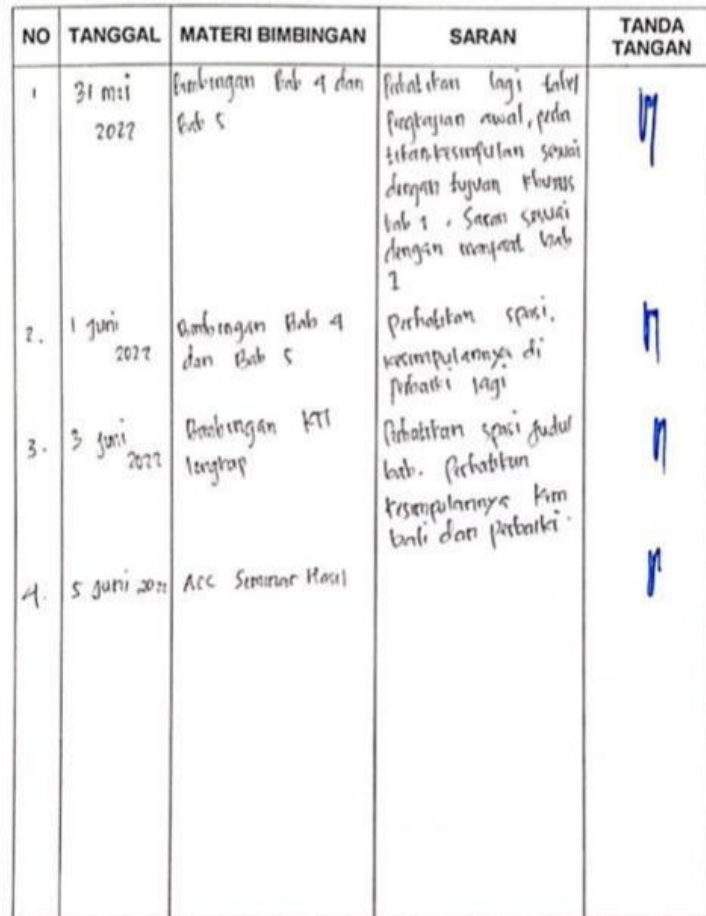 NO TANGGAL MATERI BIMBINGAN SARAN TANDA TANGAN
1 31 mei 2022 Bimbingan Bab 4 dan Bab 5
Perhatikan lagi tabel
pengkajian awal, pada
kesimpulan sesuai
dengan tujuan khusus
bab 1. Saran sesuai
dengan manfaat bab
1
2. 1 Juni 2022 Bimbingan Bab 4 dan Bab 5
Perhatikan spasi,
kesimpulannya di
perbaiki lagi
3. 3 Juni 2022 Bimbingan KTI lengkap
Perhatikan spasi judul
bab. Perhatikan
kesimpulannya kem
bali dan perbaiki.
4. 5 Juni 2022 ACC Seminar Hasil